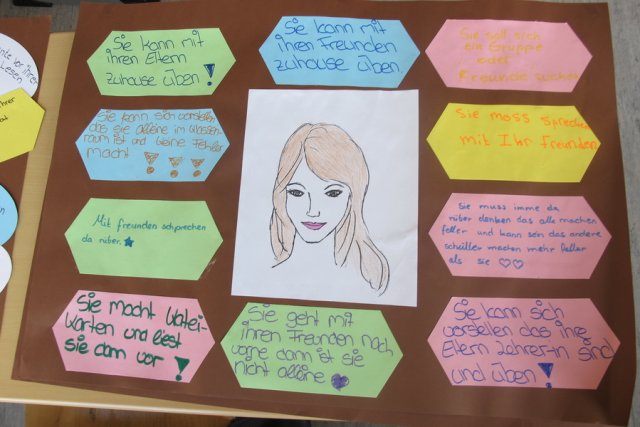 Sie kann mit
ihren Eltern
zuhause üben!
Sie kann mit
ihren Freunden
zuhause üben
Sie soll sich
ein Gruppe
Freunde suchen
Sie kann sich vorstellen
das sie alleine im Klassen-
raum ist und keine Fehler
macht !!!
Sie moss sprechen
mit Ihr Freunden
Mit freunden schprechen
da rüber.
Sie muss imme da
rüber denken das alle machen
feller und kann sein das andere
schüller machen mehr feller
als sie
Sie macht Katei-
Karten und liest
sie dann vor !
Sie geht mit
ihren Freunden nach
vorne dann ist sie
nicht alleine
Sie kann sich
vorstellen das ihre
Eltern Lehrer-in sind
und üben!